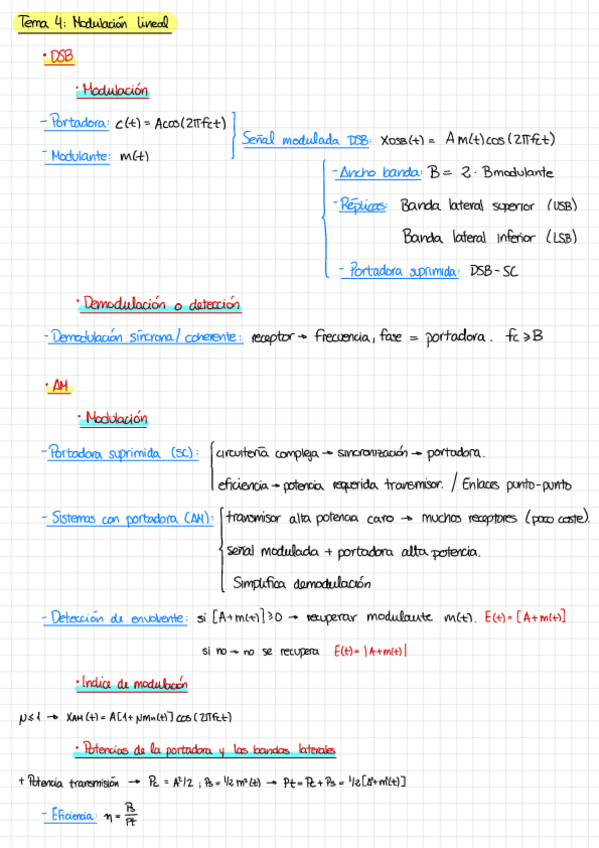 Tema 4: Modulación lineal
• DSB
• Modulación
- Portadora: c(t) = Acos(2πfct)
- Modulante: m(t)
Señal modulada DSB: XDSB(t) = A m(t) cos(2πfct)
- Ancho banda: B = 2 · Bmodulante
- Réplicas: Banda lateral superior (USB)
Banda lateral inferior (LSB)
- Portadora suprimida: DSB-SC
• Demodulación o detección
- Demodulación síncrona/ coherente: receptor → frecuencia, fase = portadora. fc ≥ B
• AM
• Modulación
- Portadora suprimida (SC): circuitería compleja → sincronización → portadora.
eficiencia → potencia requerida transmisor. / Enlaces punto-punto
- Sistemas con portadora (AM): transmisor alta potencia caro → muchos receptores (poco coste).
señal modulada + portadora alta potencia.
Simplifica demodulación
- Detección de envolvente: si [A+m(t)] ≥ 0 → recuperar modulante m(t). E(t) = [A+m(t)]
si no → no se recupera E(t) = |A+m(t)|
• Indice de modulación
μ ≤ 1 → XAM(t) = A[1+μmn(t)] cos(2πfct)
• Potencias de la portadora y las bandas laterales
+ Potencia transmisión → Pc = A²/2 ; Ps = 1/2 m²(t) → Pt = Pc + Ps = 1/2[A²+m²(t)]
- Eficiencia: η = Ps/Pt